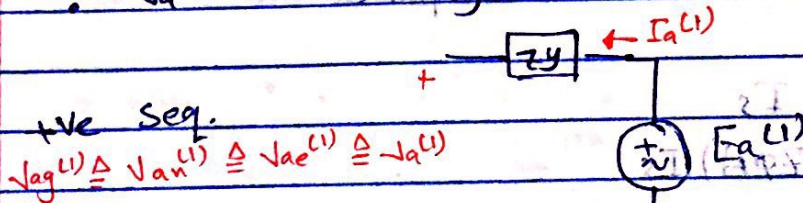 ← Ia(1)
zy
+
+ve seq.
Vag(1) ≜ Van(1) ≜ Vae(1) ≜ Va(1)
+
~
Ea(1)